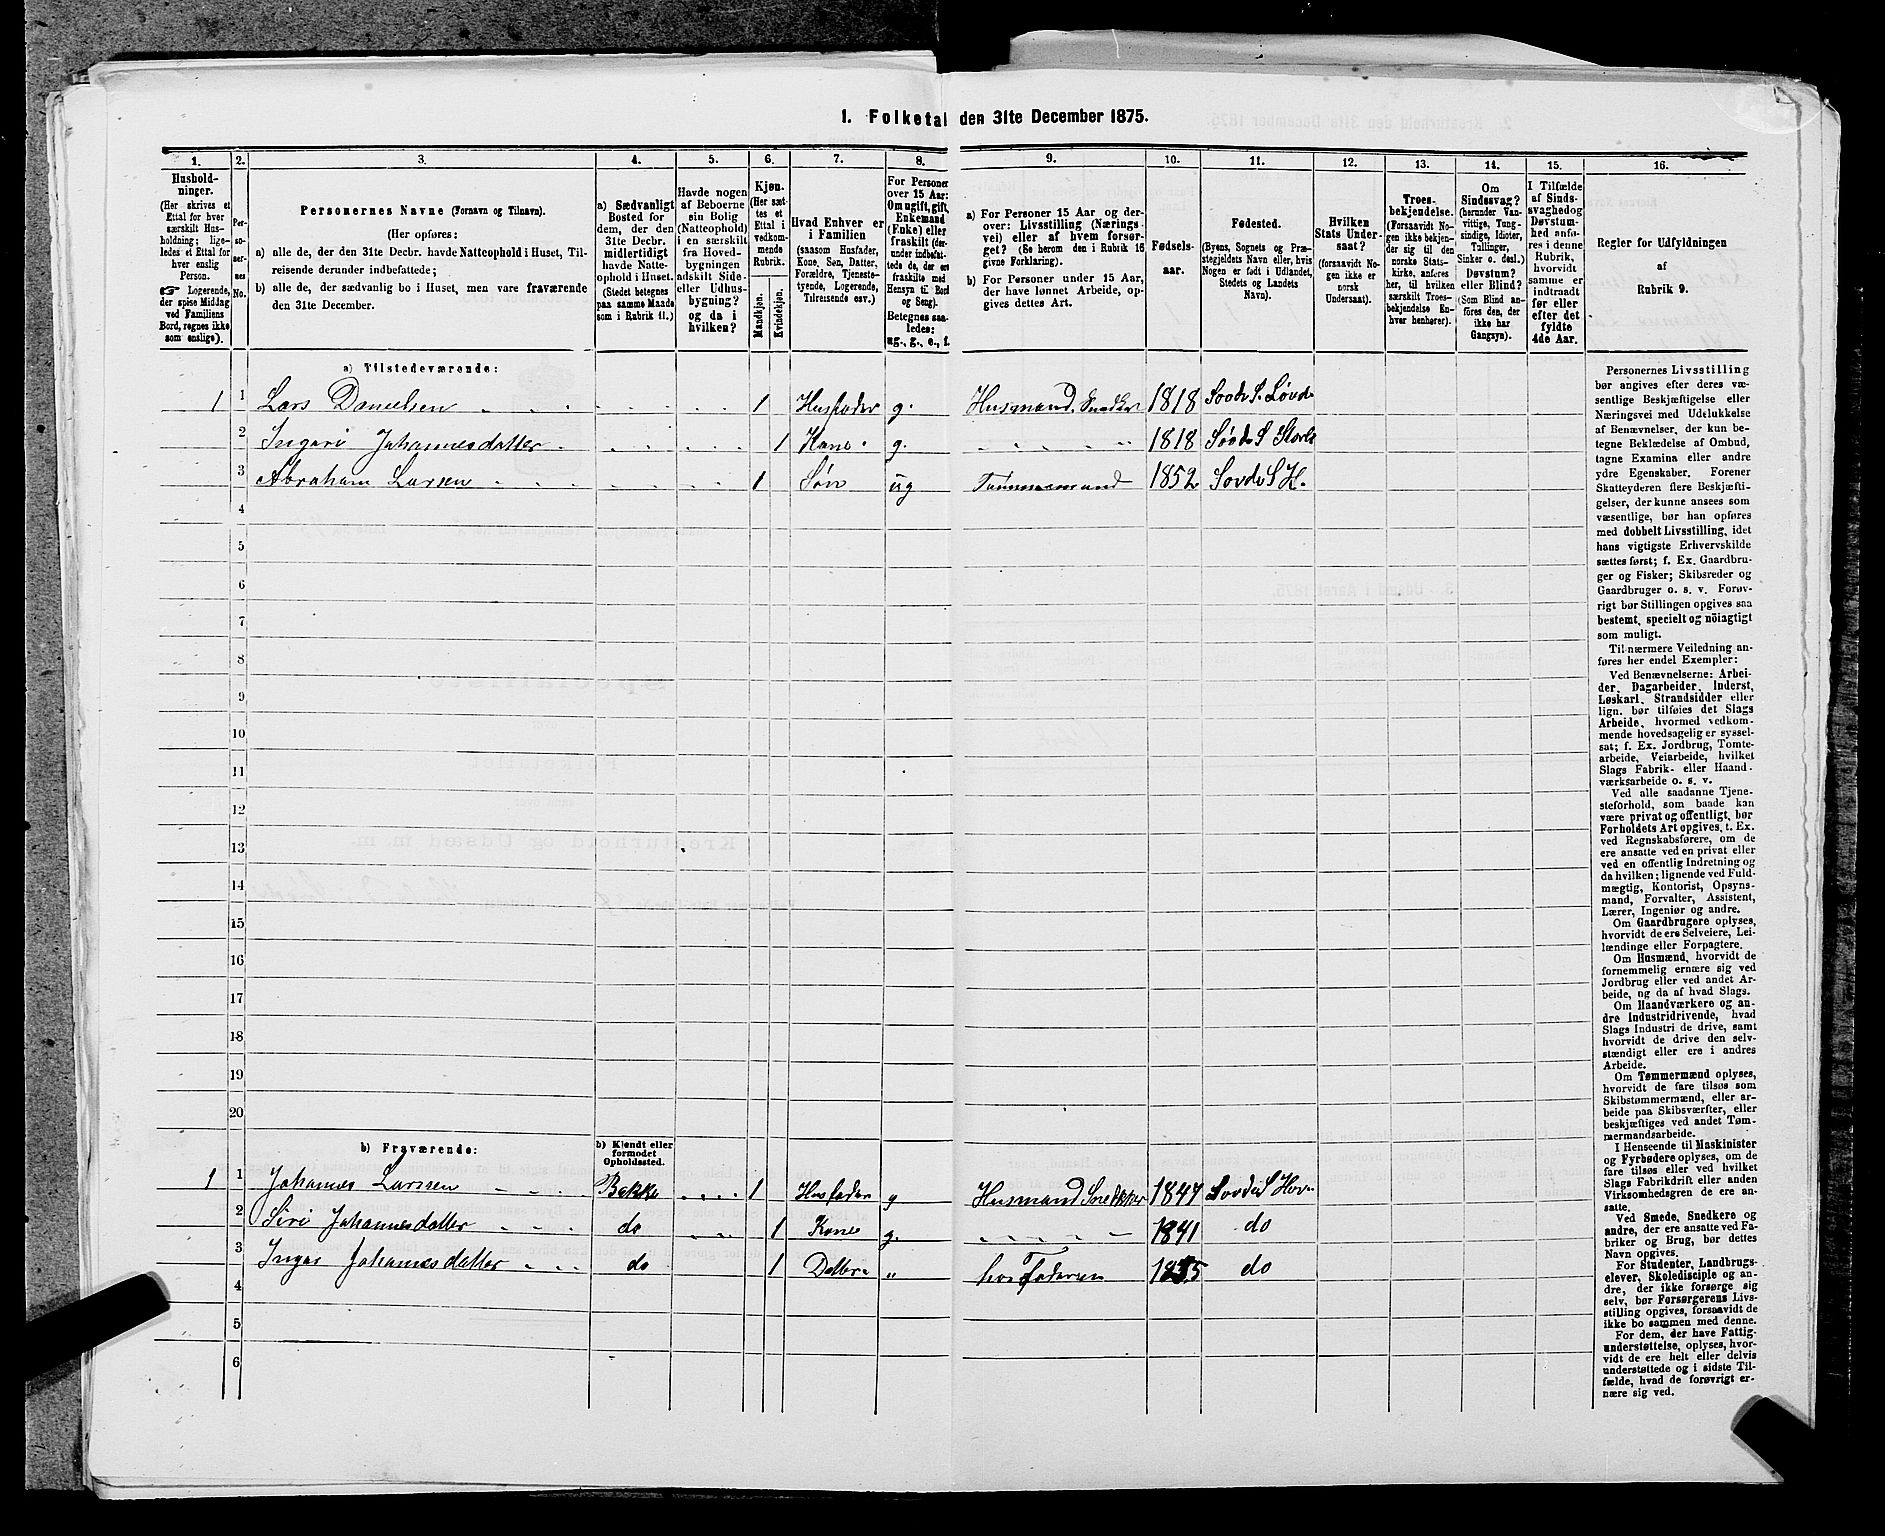 1. Folketal den 31te December 1875.
1. 2. 3. 4. 5. 6. 7. 8. 9. 10. 11. 12. 13. 14. 15. 16.
Husholdninger.
(Her skrives et
Ettal for hver
særskilt Husholdning;
ligeledes et Ettal for
hver enslig
Person.
☞ Logerende,
der spise Middag
ved Familiens
Bord, regnes ikke
som enslige).
Personernes No.
Personernes Navne (Fornavn og Tilnavn).
(Her opføres:
a) alle de, der den 31te Decbr. havde Natteophold i Huset, Tilreisende derunder indbefattede;
b) alle de, der sædvanlig bo i Huset, men vare fraværende
den 31te December.
a) Sædvanligt
Bosted for
dem, der den
31te Decbr.
midlertidigt
havde Natteophold i Huset.
(Stedet betegnes
paa samme Maade
som i Rubrik 11.)
Havde nogen
af Beboerne
sin Bolig
(Natteophold)
i en særskilt
fra Hovedbygningen
adskilt Side-
eller Udhusbygning?
og da i
hvilken?
Kjøn.
(Her sættes et
Ettal i
vedkommende
Rubrik.
Mandkjøn.
Kvindekjøn.
Hvad Enhver er
i Familien
(saasom Husfader,
Kone, Søn, Datter,
Forældre, Tjenestetyende, Logerende,
Tilreisende osv.)
For Personer
over 15 Aar:
Om ugift, gift,
Enkemand
(Enke) eller
fraskilt (derunder indbefattede de, der ere
fraskilte med
Hensyn til Bord
og Seng).
Betegnes saaledes:
ug., g., e., f.
a) For Personer 15 Aar og derover: Livsstilling (Næringsvei) eller af hvem forsørget? (Se herom den i Rubrik 16
givne Forklaring).
b) For Personer under 15 Aar,
der have lønnet Arbeide, opgives dettes Art.
Fødselsaar.
Fødested.
(Byens, Sognets og Præstegjeldets Navn eller, hvis
Nogen er født i Udlandet,
Stedets og Landets
Navn).
Hvilken
Stats Undersaat?
(forsaavidt Nogen ikke er
norsk
Undersaat).
Troesbekjendelse.
(Forsaavidt Nogen ikke bekjender sig til den
norske Statskirke, anføres
her, til hvilken
særskilt Troesbekjendelse Enhver henhører).
Om
Sindssvag?
(herunder Vanvittige, Tungsindige, Idioter,
Tullinger,
Sinker o. desl.)
Døvstum?
eller Blind?
(Som Blind anføres den, der
ikke har
Gangsyn).
I Tilfælde
af Sindssvaghed og
Døvstumhed anføres i denne
Rubrik,
hvorvidt
samme er
indtraadt
før eller
efter det
fyldte
4de Aar.
Regler for Udfyldningen
af
Rubrik 9.
a) Tilstedeværende:
1 1 Lars Danielsen 1 Husfader g. Husmand, Snedker 1818
2 Ingari Johannesdatter 1 Kone g. 1818
3 Abraham Larsen 1 Søn ug 1852
4
5
6
7
8
9
10
11
12
13
14
15
16
17
18
19
20
b) Fraværende:
b) Kjendt eller
formodet
Opholdssted.
1 1 Johannes Larssen Bakke 1 Husfader g Husmand Snekker
2 Siri Johannesdatter do 1 Kone g. 1841 do
3 Johannesdatter do 1 Datter " hos Faderen do
4
5
6
Personernes Livsstilling
bør angives efter deres væsentlige Beskjæftigelse eller
Næringsvei med Udelukkelse
af Benævnelser, der kun betegne Beklædelse af Ombud,
tagne Examina eller andre
ydre Egenskaber. Forener
Skatteyderen flere Beskjæftigelser, der kunne ansees som
væsentlige, bør han opføres
med dobbelt Livsstilling, idet
hans vigtigste Erhvervskilde
sættes først; f. Ex. Gaardbruger og Fisker; Skibsreder og
Gaardbruger o. s. v. Forøvrigt bør Stillingen opgives saa
bestemt, specielt og nöiagtigt
som muligt.
Til nærmere Veiledning anføres her endel Exempler:
Ved Benævnelserne: Arbeider, Dagarbeider, Inderst,
Løskarl, Strandsidder eller
lign. bør tilføies det Slags
Arbeide, hvormed vedkommende hovedsagelig er sysselsat; f. Ex. Jordbrug, Tomtearbeide, Veiarbeide, hvilket
Slags Fabrik- eller Haandværksarbeide o. s. v.
Ved alle saadanne Tjenesteforhold, som baade kan
være privat og offentligt, bør
Forholdets Art opgives, t. Ex.
ved Regnskabsførere, om de
ere ansatte ved en privat eller
ved en offentlig Indretning og
da hvilken; lignende ved Fuldmægtig, Kontorist, Opsynsmand, Forvalter, Assistent,
Lærer, Ingeniør og andre.
Om Gaardbrugere oplyses,
hvorvidt de ere Selveiere, Leilændinge eller Forpagtere.
Om Husmænd, hvorvidt de
fornemmelig ernære sig ved
Jordbrug eller ved andet Arbeide, og da af hvad Slags.
Om Haandværkere og andre Industridrivende, hvad
Slags Industri de drive, samt
hvorvidt de drive den selvstændigt eller ere i andres
Arbeide.
Om Tømmermænd oplyses,
hvorvidt de fare tilsøs som
Skibstømmermænd, eller arbeide paa Skibsværfter, eller
beskjæftiges ved andet Tømmermandsarbeide.
I Henseende til Maskinister
og Fyrbødere oplyses, om de
fare tilsøs eller ved hvilket
Slags Fabrikdrift eller anden
Virksomhedsgren de ere ansatte.
Ved Smede, Snedkere og
andre, der ere ansatte ved Fabriker og Brug, bør dettes
Navn opgives.
For Studenter, Landbrugselever, Skoledisciple og andre, der ikke forsørge sig
selv, bør Forsørgerens Livsstilling opgives, forsaavidt de
ikke bo sammen med denne.
For dem, der have Fattigunderstøttelse, oplyses, hvorvidt de ere helt eller delvis
understøttede og i sidste Tilfælde, hvad de forøvrigt ernære sig ved.